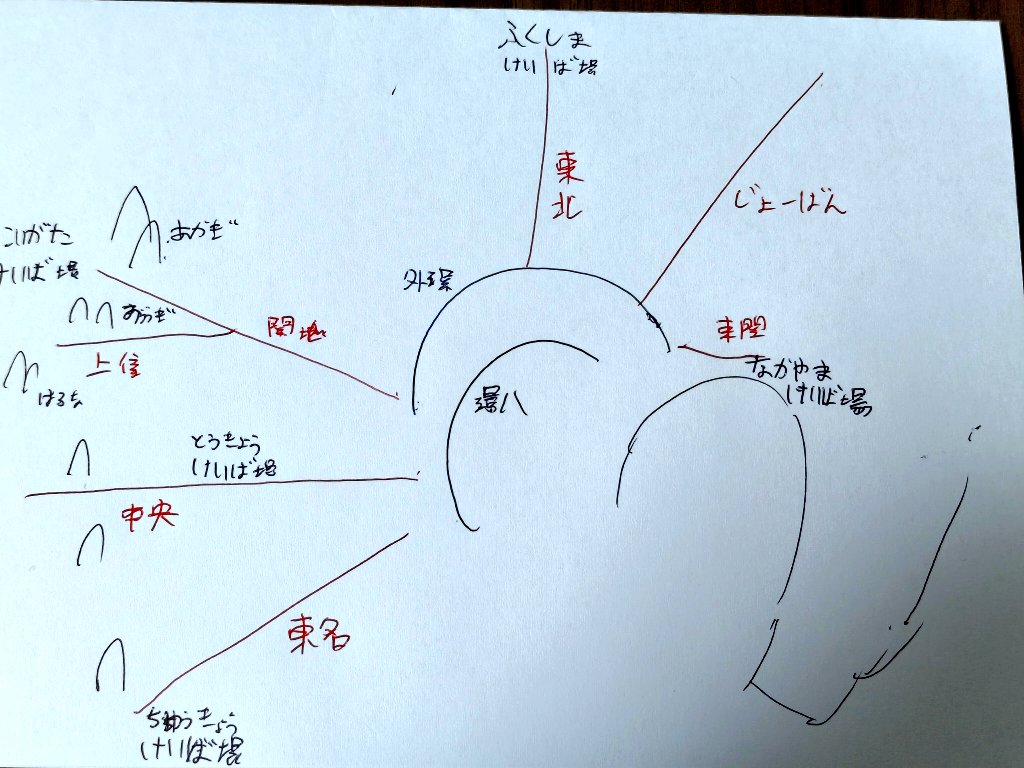 ふくしま
けいば場
東
北
じょーばん
にいがた
けいば場
あかぎ
外環
関越
あらぎ
上信
はるな
東関
なかやま
けいば場
環八
とうきょう
けいば場
中央
東名
ちゅうきょう
けいば場